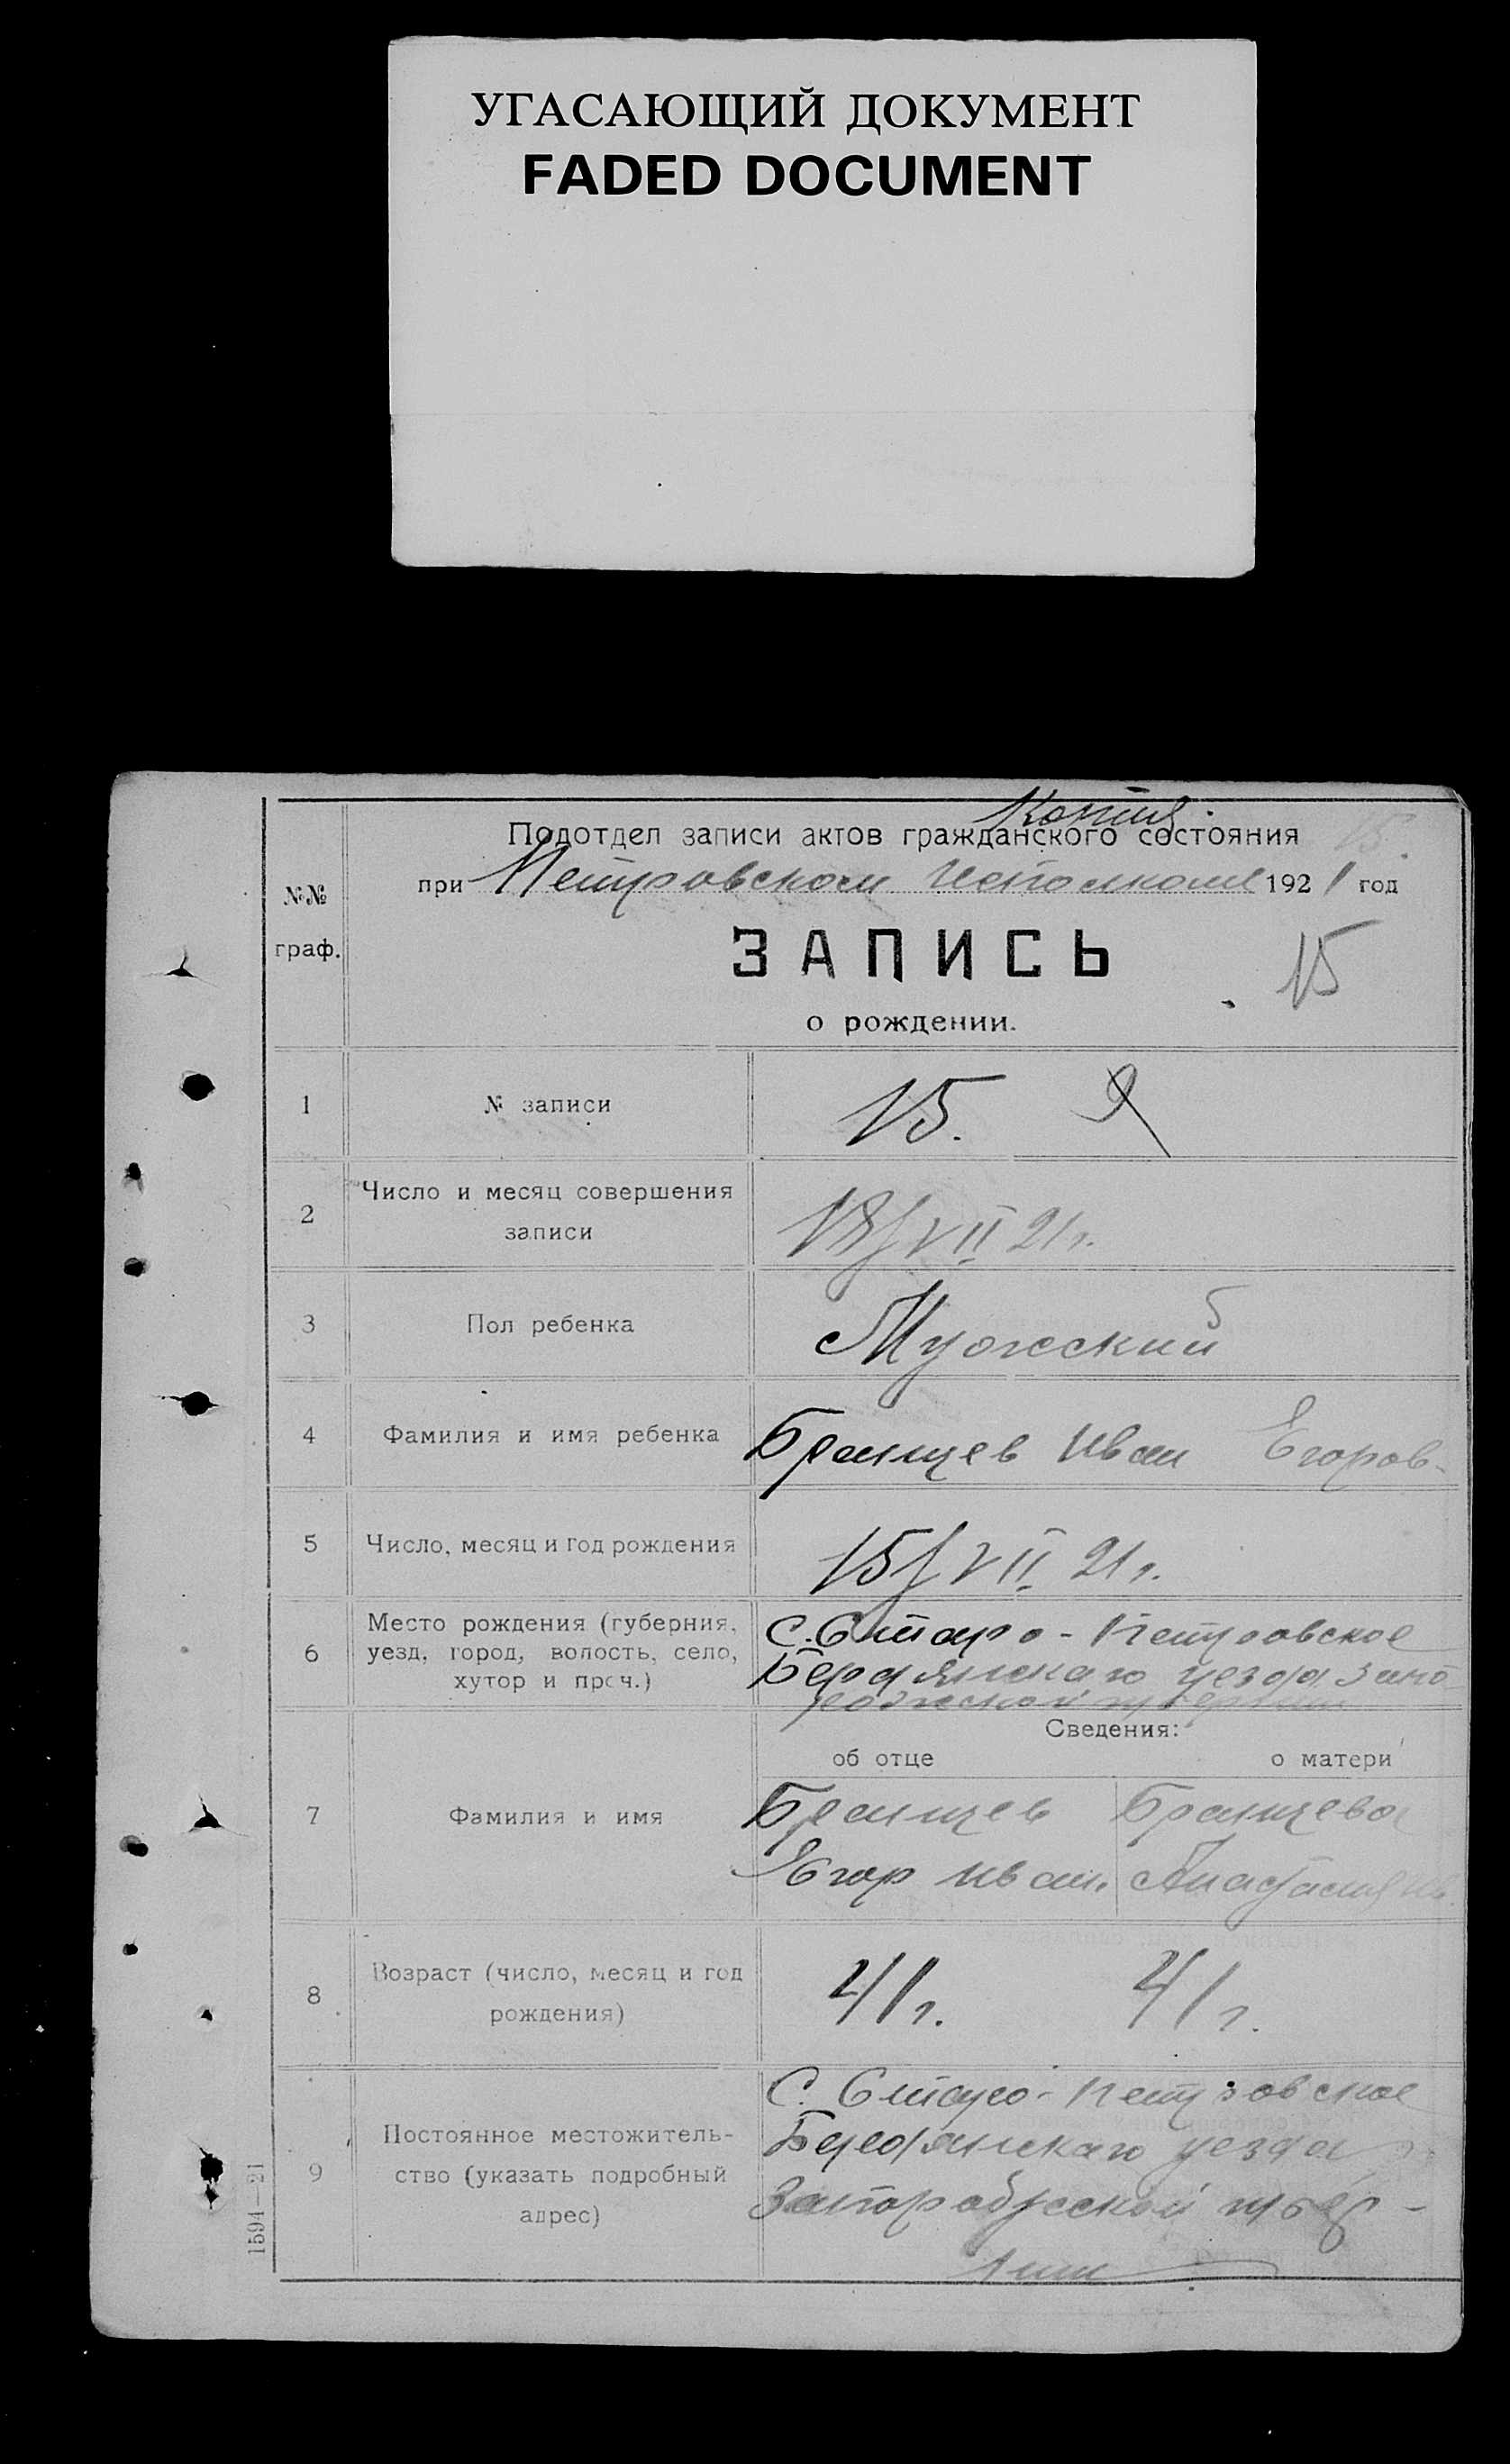 УГАСАЮЩИЙ ДОКУМЕНТ
FADED DOCUMENT
Копия.
Подотдел записи актов гражданского состояния 15.
при Петровском Исполкоме 1921 год
№№
граф.
ЗАПИСЬ
15
о рождении.
1 № записи 15.
2 Число и месяц совершения
записи 18/VII 21 г.
3 Пол ребенка Мужеский
4 Фамилия и имя ребенка Бранцев Иван Егоров
5 Число, месяц и год рождения 15/VII 21 г.
6 Место рождения (губерния, уезд, город, волость, село, хутор и проч.)
С. Старо-Петровское
Бердянскаго уезда Запо-
рожской губернии
Сведения:
об отце о матери
7 Фамилия и имя Бранцев Бранцева
Егор Иван. Анастасия Ив
8 Возраст (число, месяц и год
рождения) 41 г. 41 г.
9 Постоянное местожитель-
ство (указать подробный
адрес)
С. Старо-Петровское
Бердянскаго уезда
Запорожской губер-
нии
1594—21